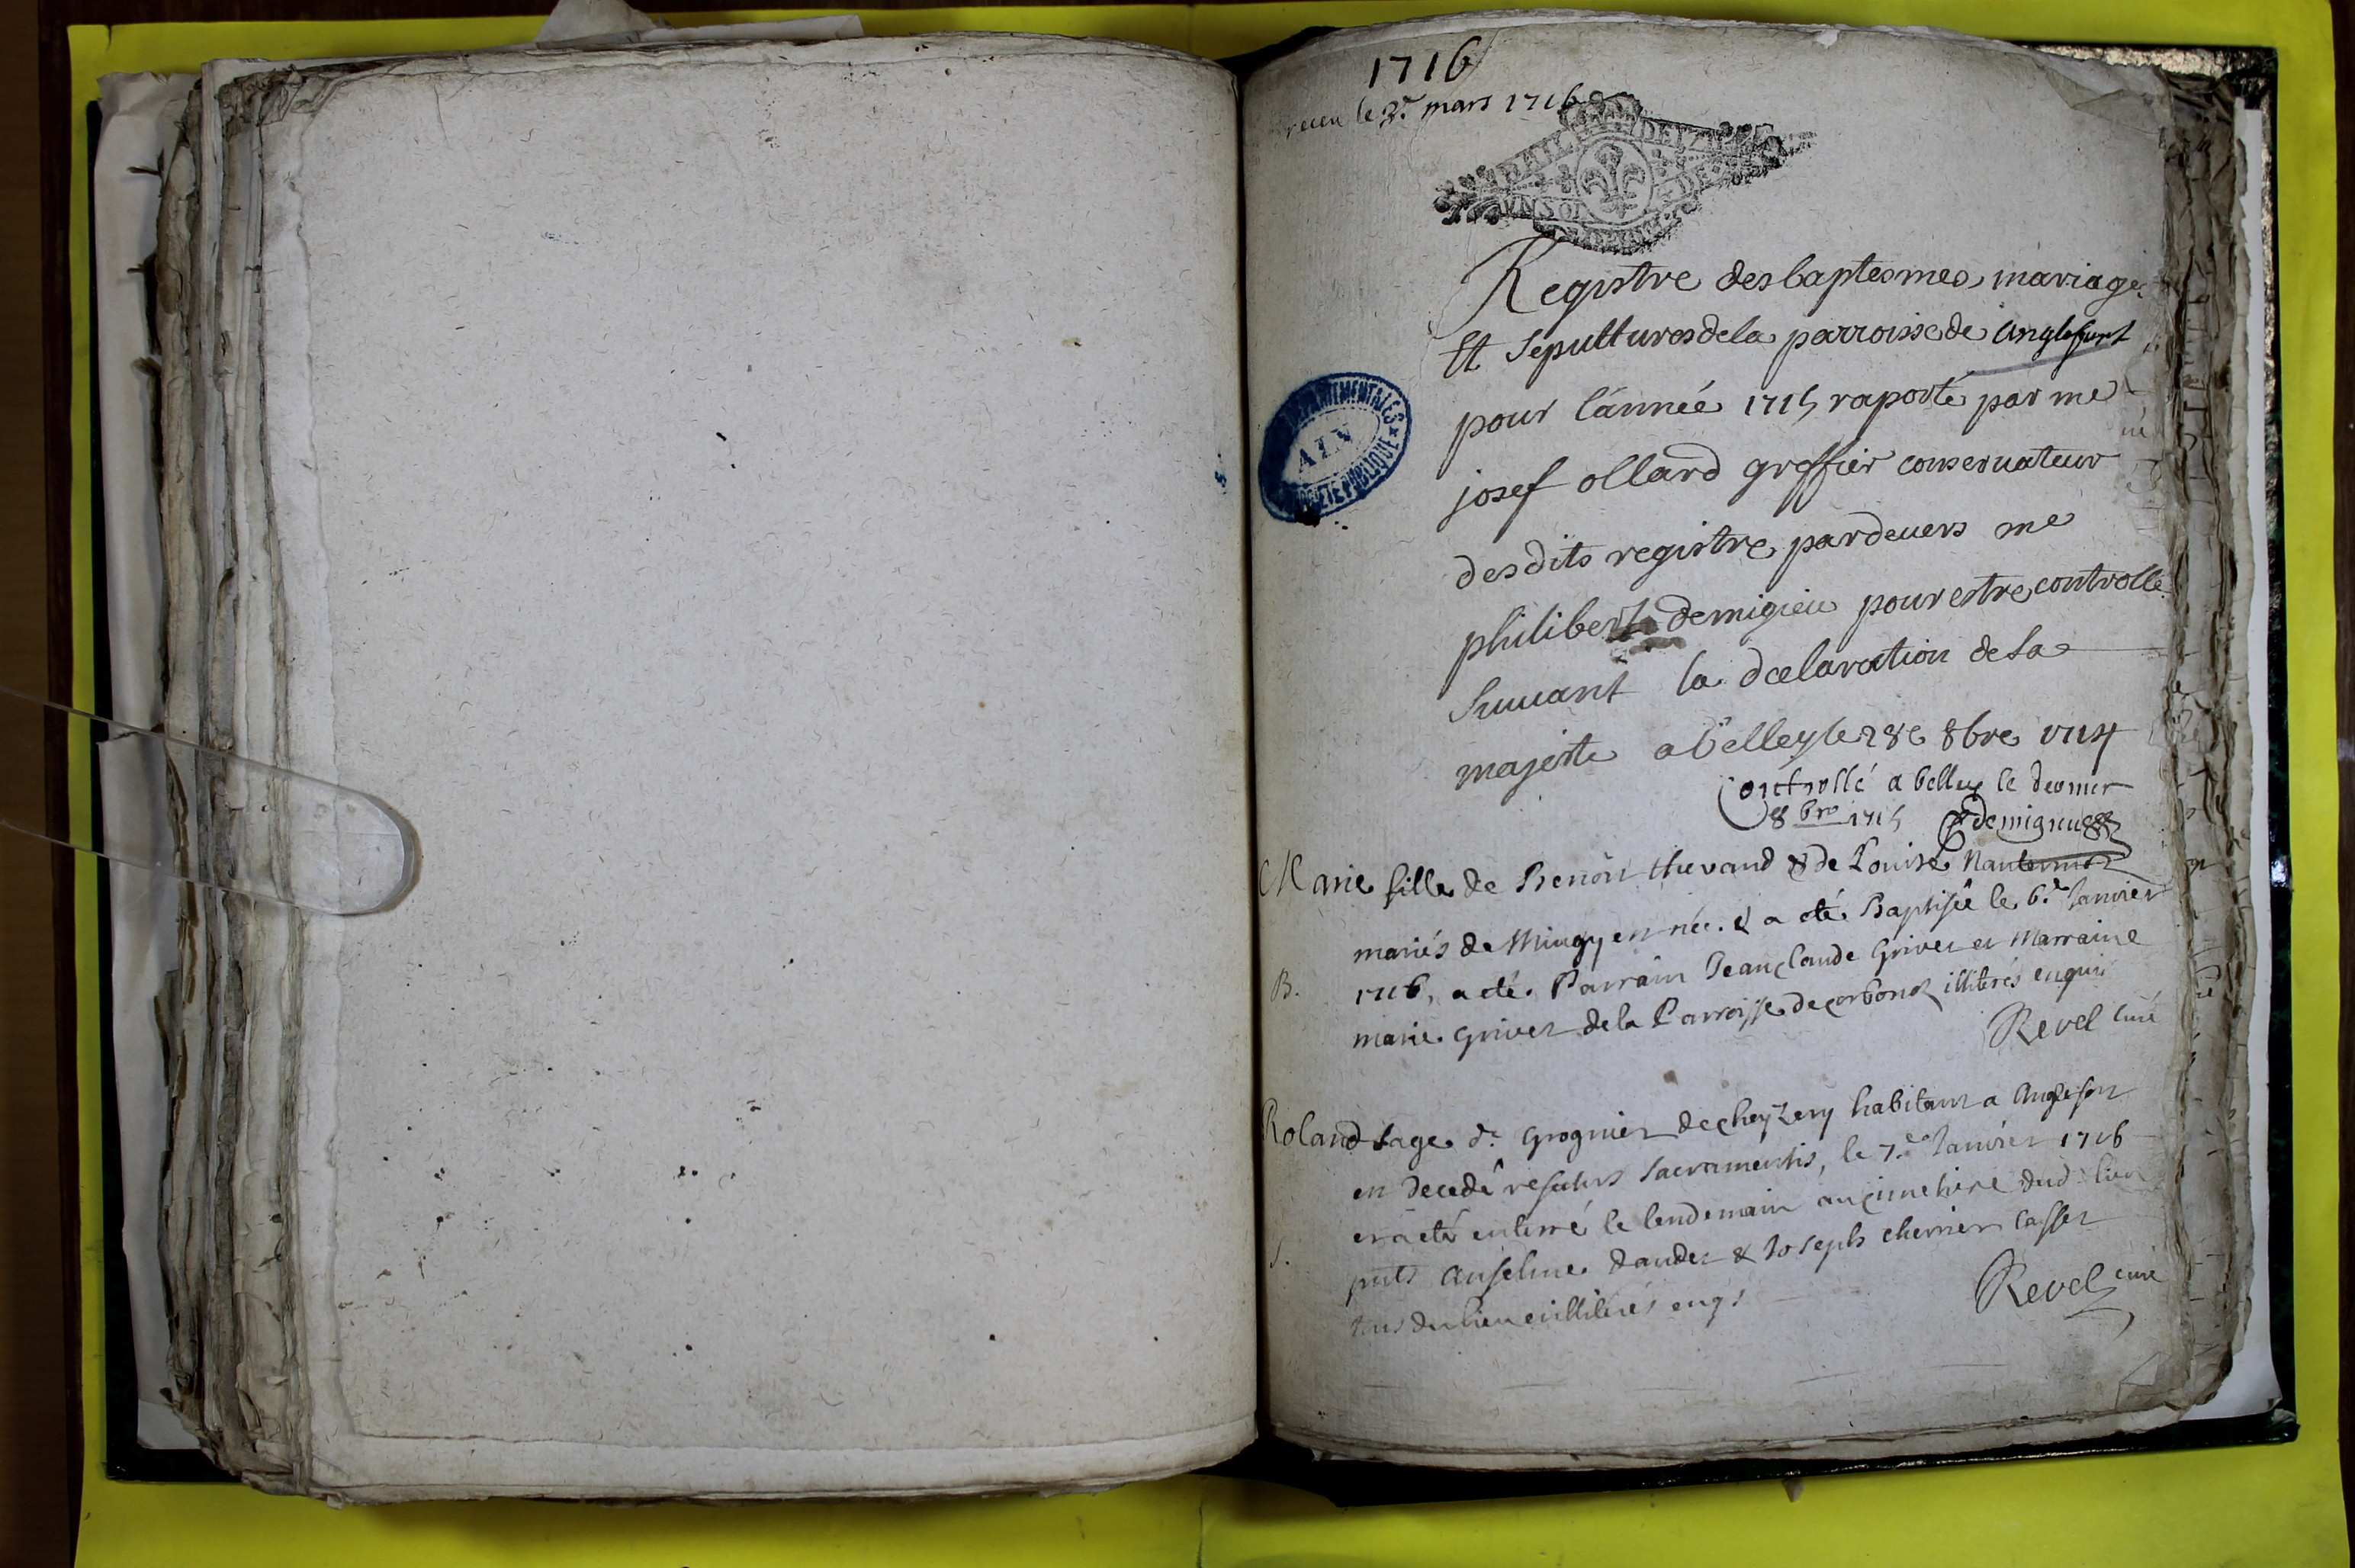 1716
receu le 3e mars 1716
Registre des baptesmes, mariages
Et Sepultures de la parroisse de anglefort
pour l'année 1715 raporté par me
josef ollard greffier conservateur
desdits registre pardevers me
philibert demigieu pour estre controllé
Suivant la declaration de Sa
majeste a belley le 28e 8bre 1714
Controllé a belley le dernier
8bre 1715 demigieu
Marie fille de Benoit thevand & de Louise
mariés de Mingy est née & a eté Baptisée le 6e Janvier
B. 1716, a eté Parrain Jean Claude Grivet et Marraine
marie Grivet de la Parroisse de corbonod illiterés enquis
Revel curé
Roland sage dt Grognier de cheyzery habitant a Anglefort
est decedé refectus Sacramentis, le 7e Janvier 1716
et a eté enterré le lendemain au cimetiere dud lieu
S. pnts Anselme dandet & Joseph cherrier
tous du lieu et illiterés enqs
Revel curé
DEPARTEMENTALES
AIN
PROPRIÉTÉ PUBLIQUE